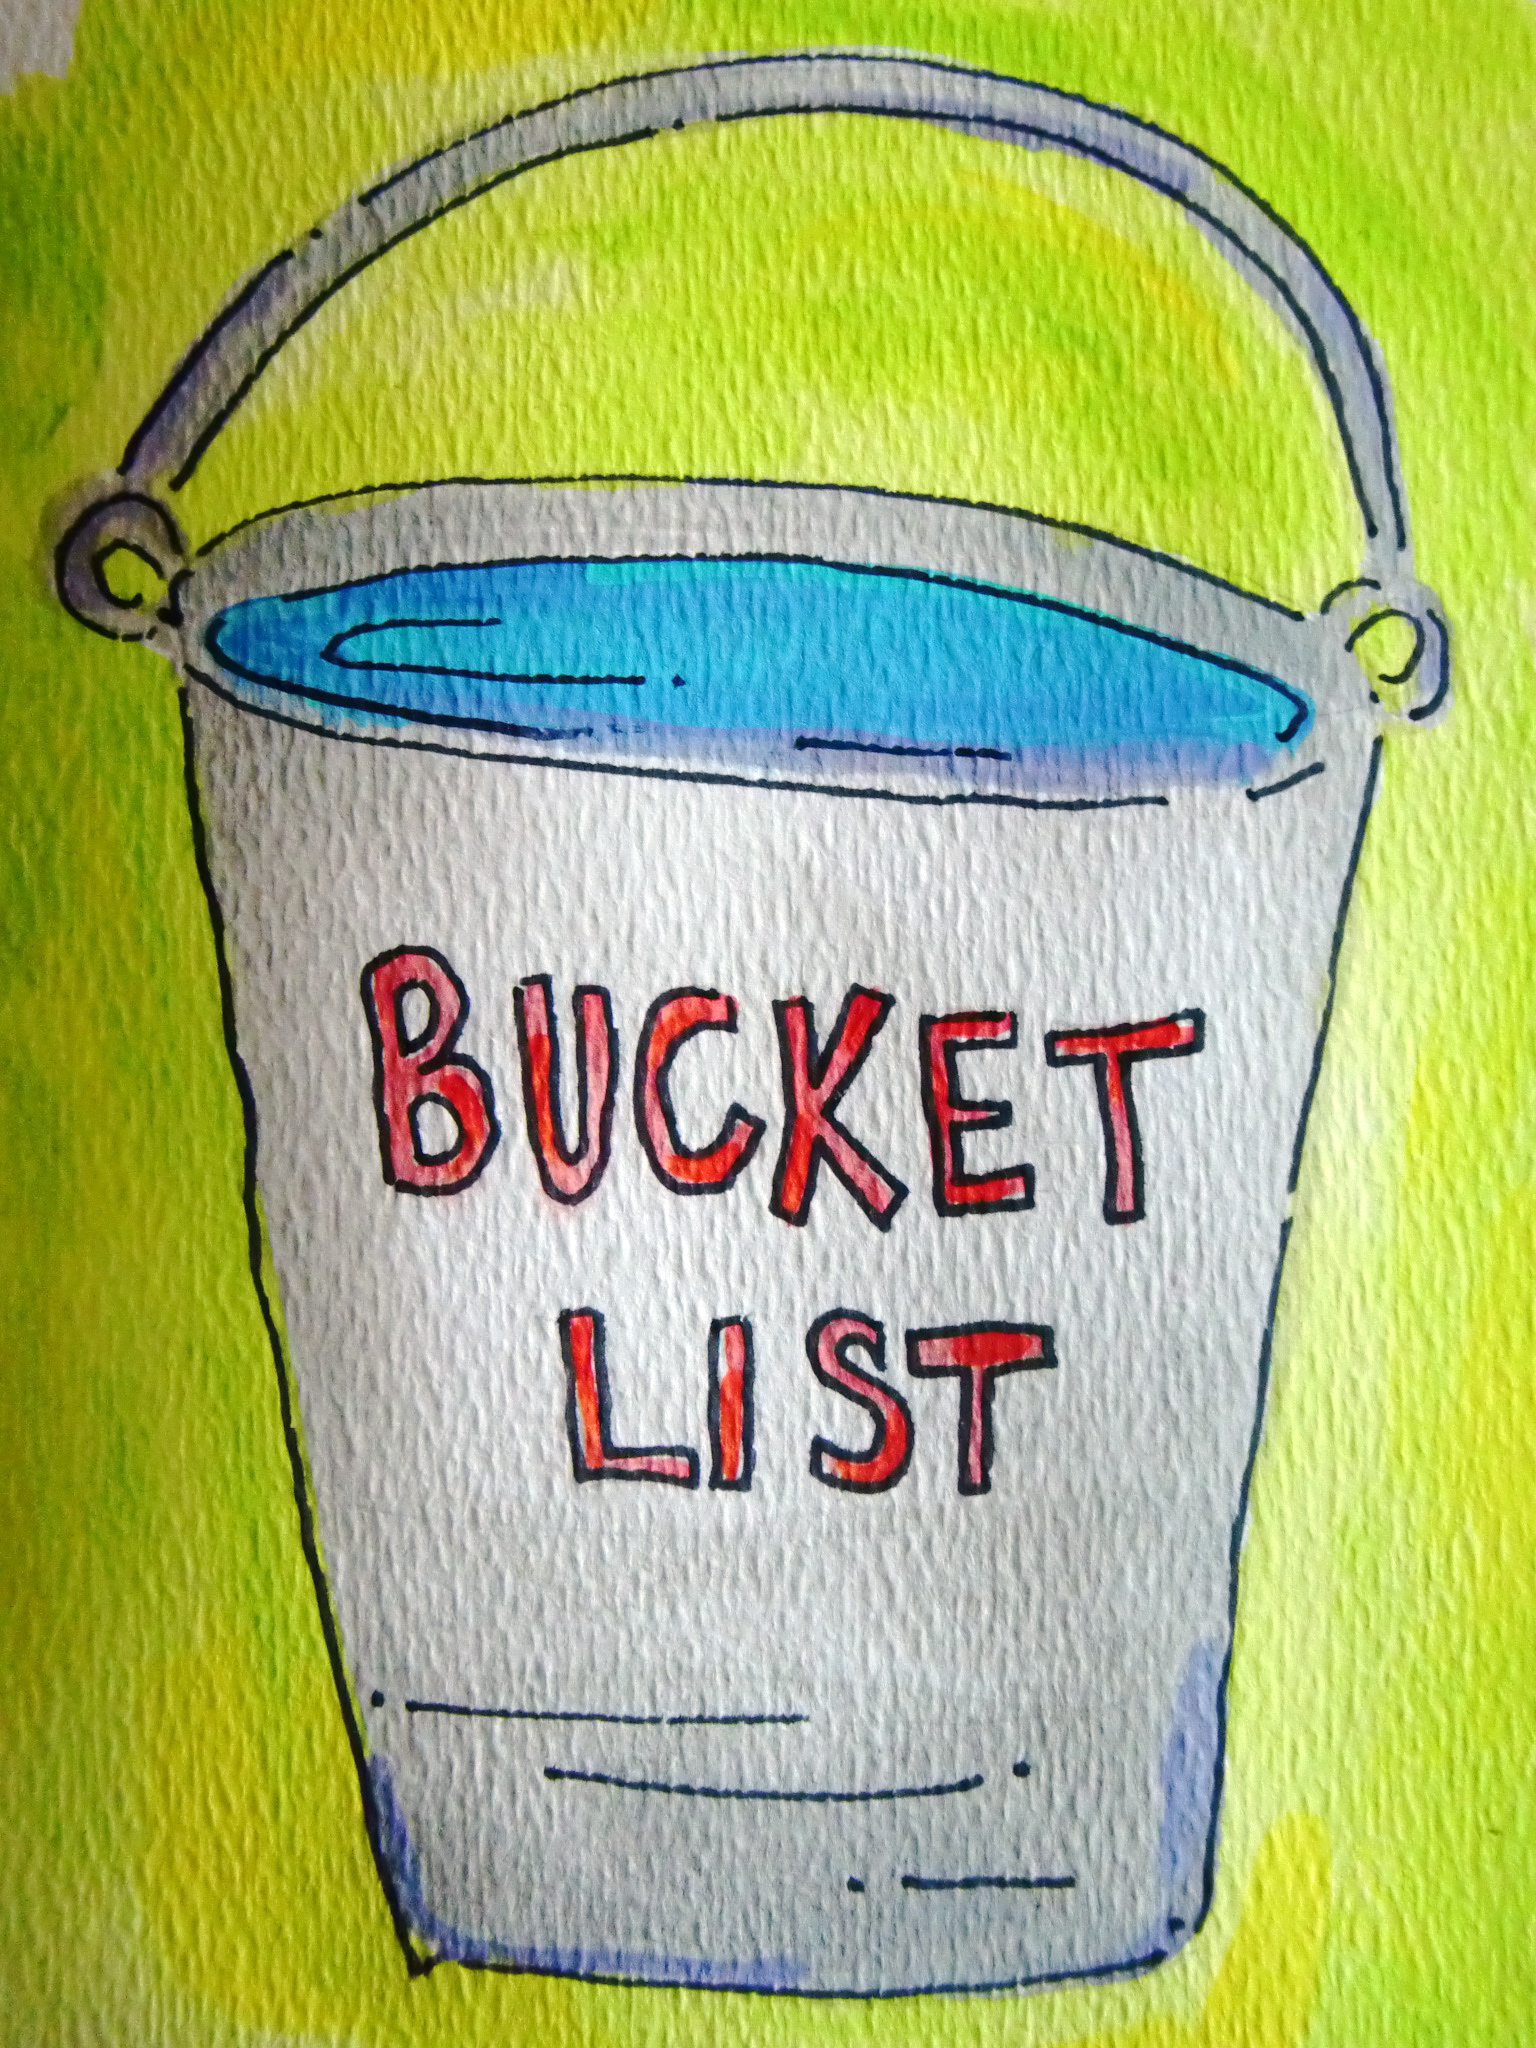 BUCKET
LIST